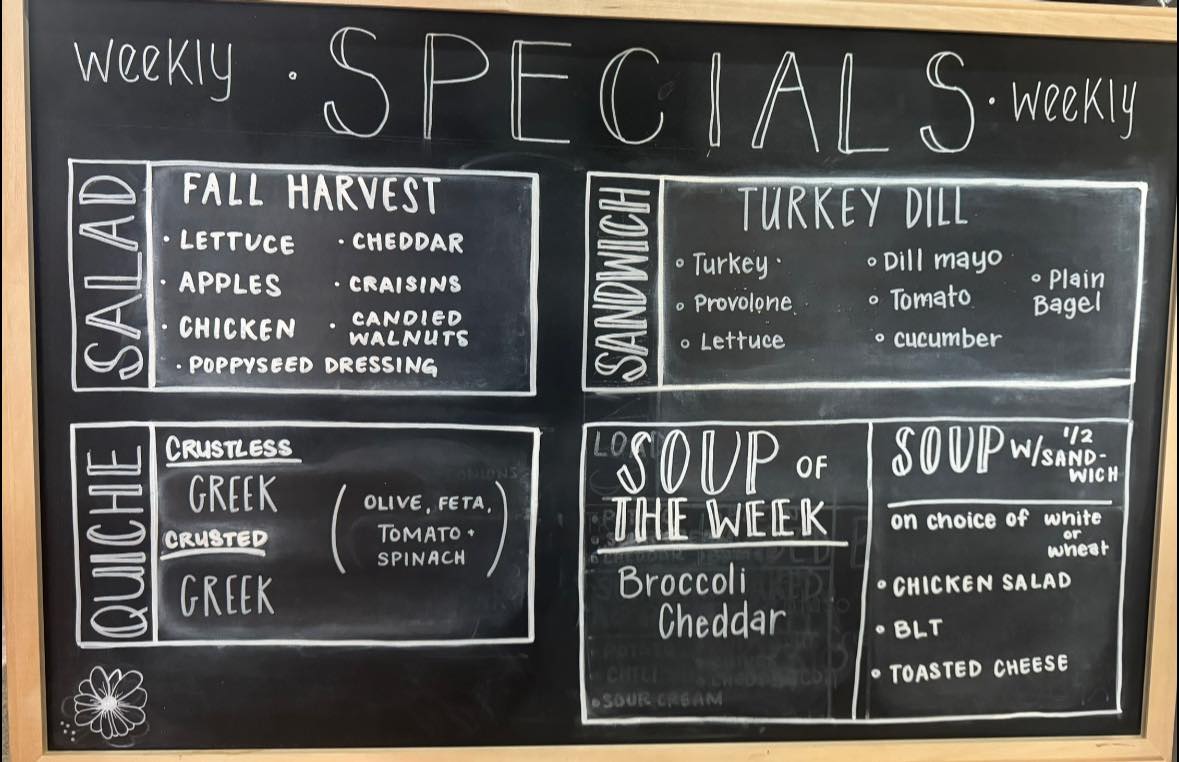 weekly · SPECIALS · weekly
SALAD
FALL HARVEST
· LETTUCE · CHEDDAR
· APPLES · CRAISINS
· CHICKEN · CANDIED
WALNUTS
· POPPYSEED DRESSING
SANDWICH
TURKEY DILL
◦ Turkey ◦ Dill mayo
◦ Provolone ◦ Tomato ◦ Plain
Bagel
◦ Lettuce ◦ cucumber
QUICHE
CRUSTLESS
GREEK
CRUSTED
GREEK
(OLIVE, FETA,
TOMATO +
SPINACH)
SOUP OF
THE WEEK
Broccoli
Cheddar
• SOUR CREAM
SOUP W/ 1/2
SAND-
WICH
on choice of white
or
wheat
• CHICKEN SALAD
• BLT
• TOASTED CHEESE